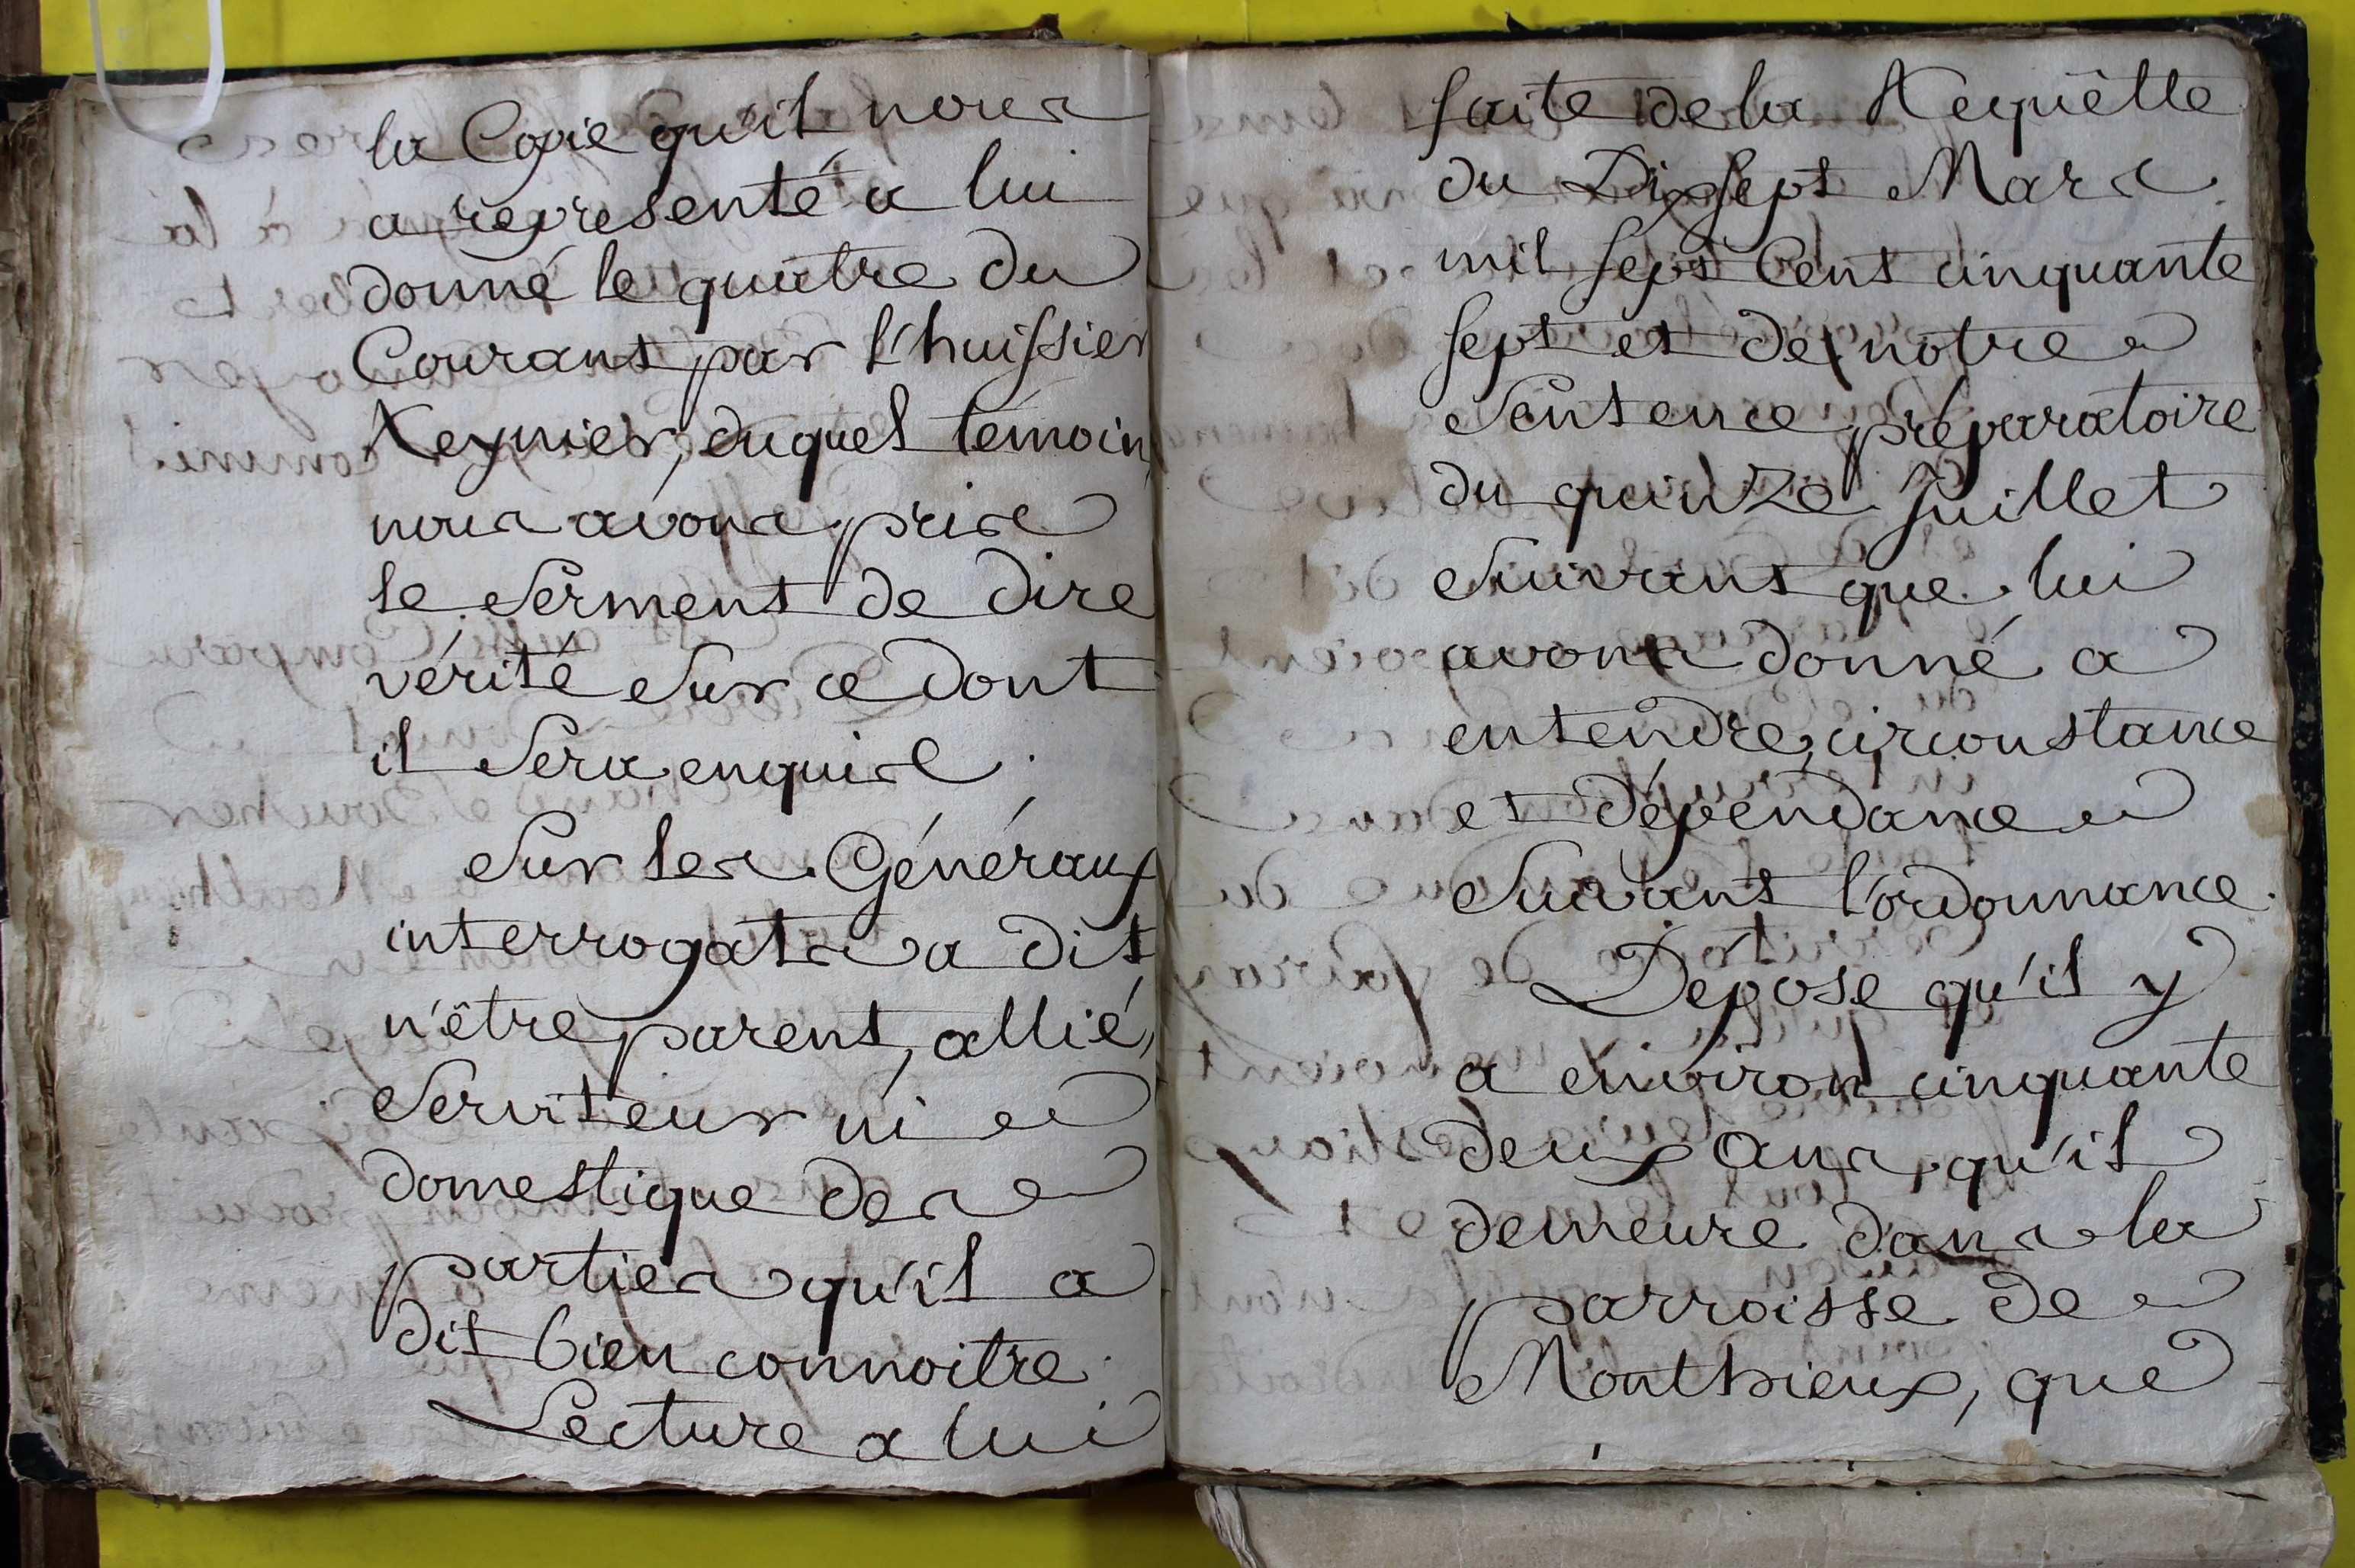 la Copie qu'il nous
a représenté a lui
donné le quatre du
Courant par l'huissier
Reynier, duquel témoin,
nous avons pris
le Serment de dire
vérité Sur ce dont
il Sera enquis.
Sur les Généraux
interrogats a dit
n'être parent, allié,
Serviteur ni
domestique des
parties qu'il a
dit bien connoitre.
Lecture a lui
faite de la Requêtte
du Dix sept Mars
mil sept Cent cinquante
sept et de notre
Sentence préparatoire
du quinze Juillet
Suivant que lui
avons donné a
entendre, circonstance
et dépendance
Suivant l'ordonnance.
Dépose qu'il y
a environ cinquante
deux ans qu'il
demeure dans la
parroisse de
Monthieux, que